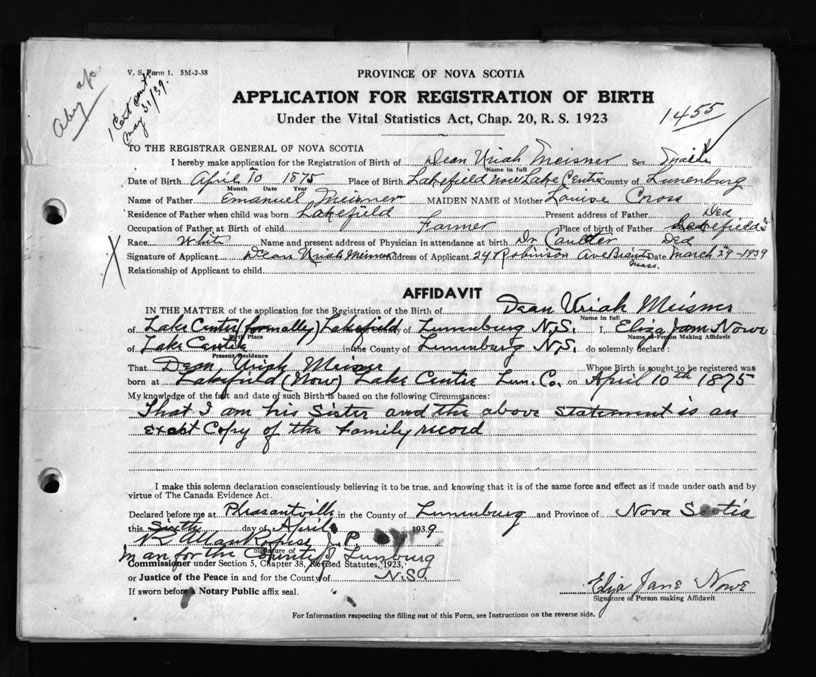 V. S. Form 1. 5M-2-38
1 Cert
May 31/39.
PROVINCE OF NOVA SCOTIA
APPLICATION FOR REGISTRATION OF BIRTH
Under the Vital Statistics Act, Chap. 20, R. S. 1923
1455
TO THE REGISTRAR GENERAL OF NOVA SCOTIA
I hereby make application for the Registration of Birth of Dean Uriah Meisner Sex Male
Name in full
Date of Birth April 10 1875 Place of Birth Lakefield now Lake Centre County of Lunenburg
Month Date Year
Name of Father Emanuel Meisner MAIDEN NAME of Mother Louise Cross
Residence of Father when child was born Lakefield Present address of Father Ded
Occupation of Father at Birth of child Farmer Place of birth of Father Lakefield
Race White Name and present address of Physician in attendance at birth Dr Ded
Signature of Applicant Dean Uriah Meisner Address of Applicant 24 Robinson Ave Date March 29-1939
Mass.
Relationship of Applicant to child
AFFIDAVIT
IN THE MATTER of the application for the Registration of Birth of Dean Uriah Meisner
Name in full
of Lake Center (formally) Lakefield County of Lunenburg N.S. I, Eliza Jane Nowe
Birth Place Name of Person Making Affidavit
of Lake Centre in the County of Lunenburg N.S. do solemnly declare:
Present Residence
That Dean Uriah Meisner Whose Birth is sought to be registered was
born at Lakefield (Now) Lake Centre Lun. Co. on April 10th 1875
My knowledge of the fact and date of such Birth is based on the following Circumstances:
That I am his Sister and the above statement is an
exact Copy of the family record
I make this solemn declaration conscientiously believing it to be true, and knowing that it is of the same force and effect as if made under oath and by
virtue of The Canada Evidence Act.
Declared before me at Pleasantville in the County of Lunenburg and Province of Nova Scotia
this Sixth day of April 1939
J.P.
Signature of
in and for the County of Lunburg
Commissioner under Section 5, Chapter 38, Revised Statutes, 1923,
or Justice of the Peace in and for the County of N.S.
If sworn before a Notary Public affix seal.
Eliza Jane Nowe
Signature of Person making Affidavit
For Information respecting the filling out of this Form, see Instructions on the reverse side.